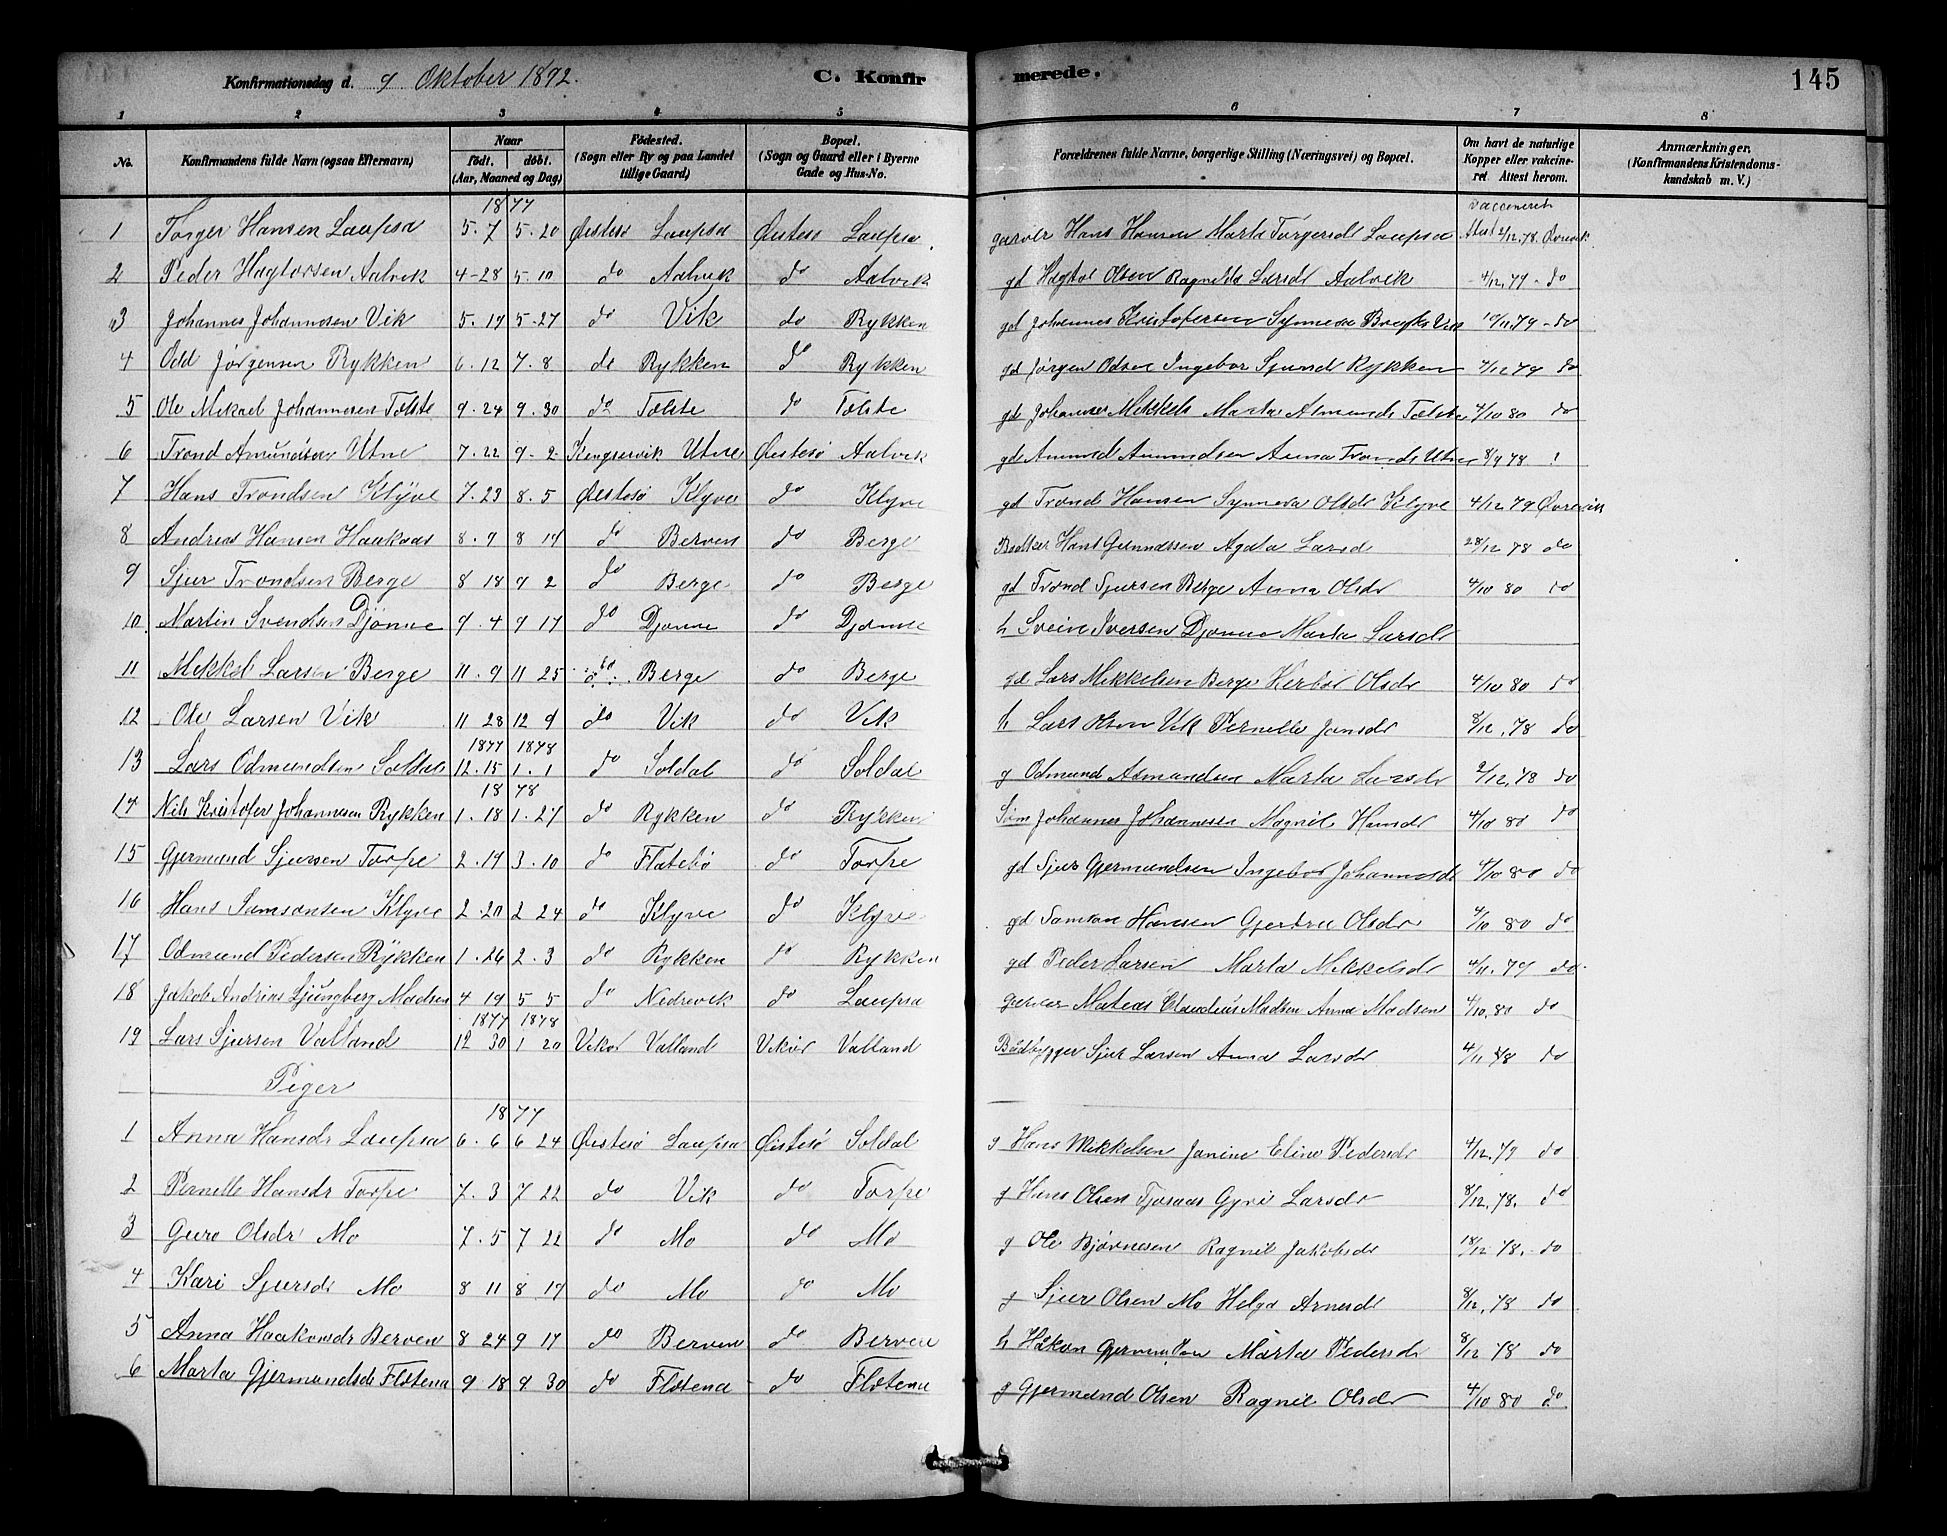 Konfirmationsdag d. 9 Oktober 1892.
C. Konfirmerede.
145
1 2 3 4 5 6 7 8
No. Konfirmandens fulde Navn (ogsaa Efternavn) Naar født. døbt. (Aar, Maaned og Dag) Fødested. (Sogn eller By og paa Landet tillige Gaard) Bopæl. (Sogn og Gaard eller i Byerne Gade og Hus-No. Forældrenes fulde Navne, borgerlige Stilling (Næringsvei) og Bopæl. Om havt de naturlige Kopper eller vakcineret. Attest herom. Anmærkninger. (Konfirmandens Kristendomskundskab m. V.)
1877 vaccineret
1 Torger Hansen Laupsa 5.7 5.20 Østesø Laupsa Østesø Laupsa garver Hans Hansen Marta Torgersdr Laupsa Attest 2/12.78.
2 Peder Hagtorsen Aalvik 4-28 5.10 do Aalvik do Aalvik gd Hagtor Olsen Ragnilda Larsdr Aalvik 4/12.79 - do
3 Johannes Johannesen Vik 5.19 5-27 do Vik do Rykken gd Johannes Kristofersen Synneva 10/11.79 - do
4 Odd Jørgensen Rykken 6.12 7.8 do Rykken do Rykken gd Jørgen Odsen Ingebor Sjursdr Rykken 4/12 79 do
5 Ole Mikael Johannesen Tolste 9.24 9.30 do Tolste do Tolste gd Johannes Mikkels Marta Asmundsdr Tolste 4/10 80 do
6 Trond Amundsen Utne 7.22 9-2 Kingservik Utne Østesø Aalvik gd Amund Amundsen Anna Trondsdr Utne 8/9 78 !
7 Hans Trondsen Klyve 7.23 8.5 Østesø Klyve do Klyve gd Trond Hansen Synneva Olsdr Klyve 4/12.79
8 Andreas Hansen Haakaas 8.9 8 19 do Berven do Berge Bødker Hans Gunnarsen Agata Larsd 28/12 78 do
9 Sjur Trondsen Berge 8 18 9 2 do Berge do Berge gd Trond Sjursen Berge Anna Olsdr 4/10 80 do
10. Martin Svendsen Djønne 9.4 9 17 do Djønne do Djønne h Svein Iversen Djønne Marta Larsdr
11 Mikkel Larsen Berge 11.9 11 25 do Berge do Berge gd Lars Mikkelsen Berge Herbor Olsdr 4/10 80 do
12 Ole Larsen Vik 11 28 12 9 do Vik do Vik h Lars Olsen Vik Pernille Jonsdr 8/12.78 do
1877 1878
13 Lars Odmundsen Soldal 12.15 1.1 do Soldal do Soldal g Odmund Asmundsen Marta Larsdr 2/12.78 do
1878
14 Nils Kristofer Johannesen Rykken 1.18 1.27 do Rykken do Rykken Søm Johannes Johannesen Magnil Hansdr 4/10 80 do
15 Gjermund Sjursen Torpe 2.19 3.10 do Flatebø do Torpe gd Sjur Gjermundsen Ingebor Johannesdr 4/10 80 do
16 Hans Samsonsen Klyve 2.20 2 24 do Klyve do Klyve gd Samson Hansen Gjertru Olsdr 4/10 80 do
17 Odmund Pedersen Rykken 1.26 2.3 do Rykken do Rykken gd Peder Larsen Marta Mikkelsdr 4/11.79 do
18 Jakob Andreas Ljungberg Madsen 4 19 5 5 do Nedrevik do Laupsa garver Mateas Claudius Madsen Anna Madsen 4/10.80 do
1877 1878
19 Lars Sjursen Valland 12 30 1 20 Vikør Valland Vikør Valland Baadbygger Sjur Larsen Anna Larsdr 4/11 78 do
Piger
1877
1 Anna Hansdr Laupsa 6.6 6 24 Østesø Laupsa Østesø Soldal g Hans Mikkelsen Janine Eline Pedersdr 4/12.79 do
2 Pernille Hansdr Torpe 7.3 7 22 do Vik do Torpe g Hans Olsen Gyri Larsdr 8/12.78. do
3 Guro Olsdr Mo 7.5 7 22 do Mo do Mo g Ole Bjørnesen Ragnil Jakobsdr 18/12 78. do
4 Kari Sjursdr Mo 8 11 8 19 do Mo do Mo g Sjur Olsen Mo Helga Arnesdr 8/12.78 do
5 Anna Haakonsdr Berven 8 24 9 17 do Berven do Berven h Håkon Marta Pedersdr 8/12 78 do
6 Marta Gjermundsdr Flotena 9 18 9 30 do Flotena do Flotena g Gjermund Olsen Ragnil Olsdr 4/10 80 do